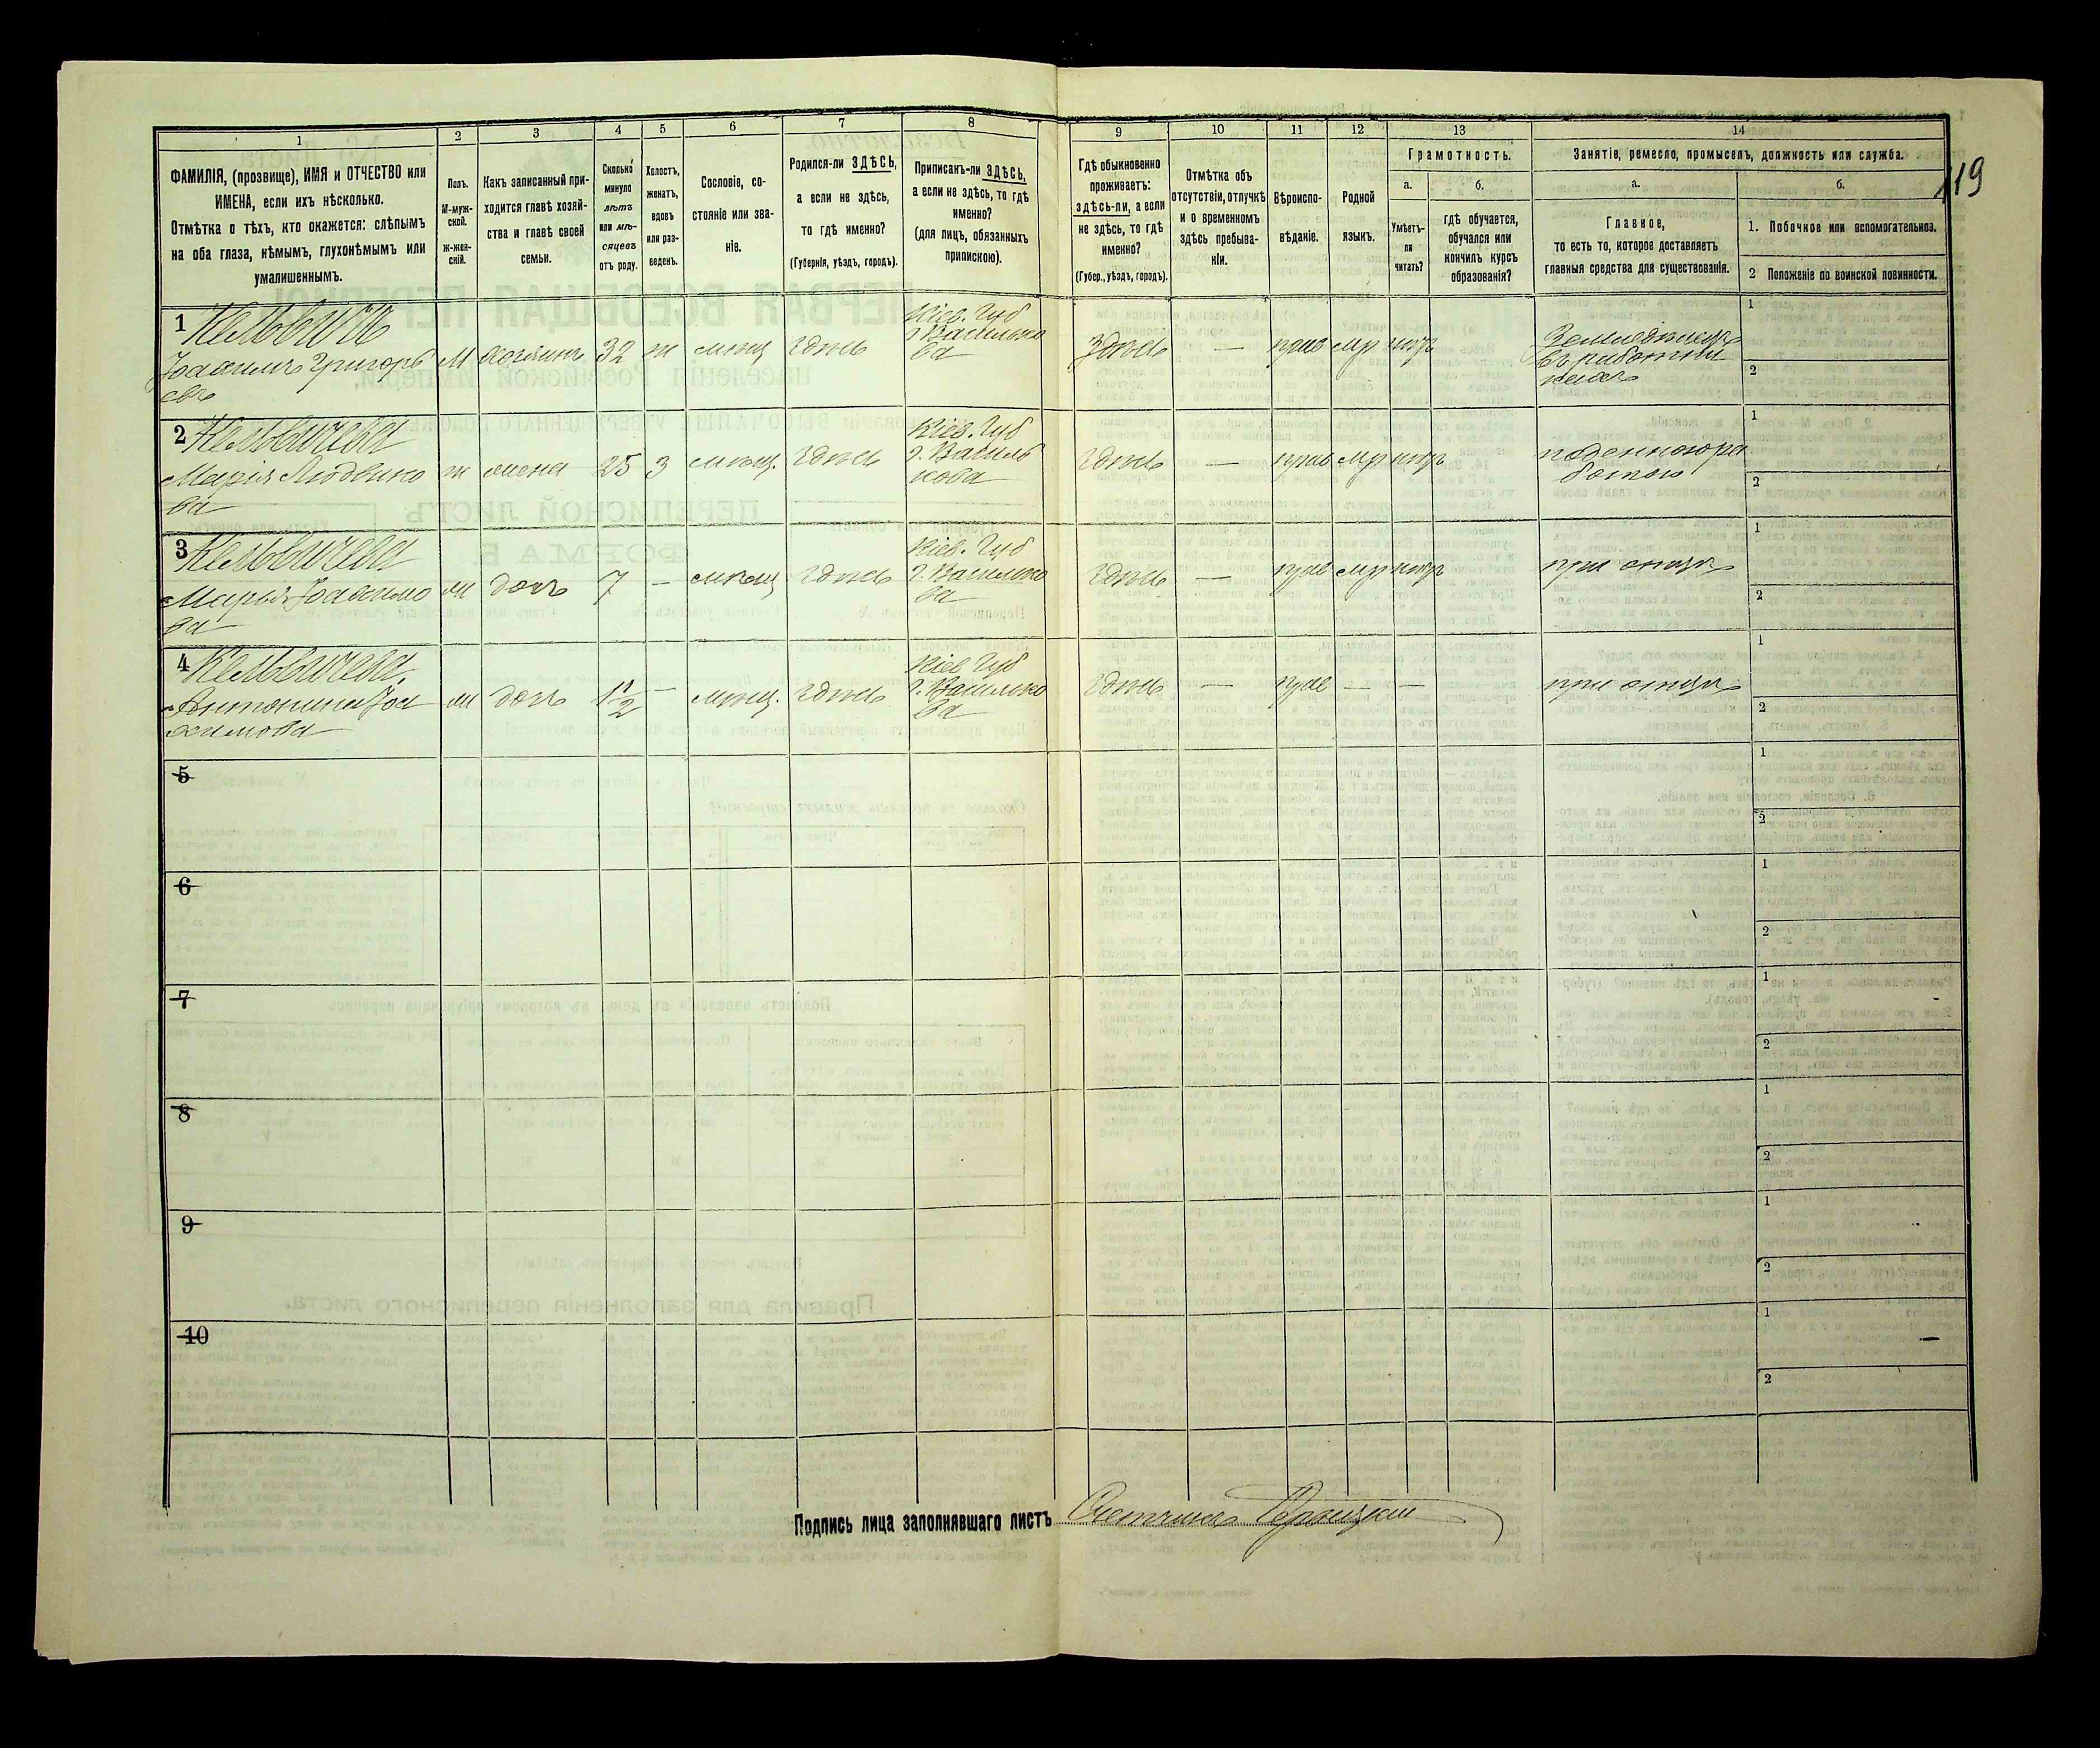 1 2 3 4 5 6 7 8 9 10 11 12 13 14
ФАМИЛІЯ, (прозвище), ИМЯ и ОТЧЕСТВО или
ИМЕНА, если ихъ нѣсколько.
Отмѣтка о тѣхъ, кто окажется: слѣпымъ
на оба глаза, нѣмымъ, глухонѣмымъ или
умалишеннымъ.
Полъ.
М-муж-
ской.
Ж-жен-
скій.
Какъ записанный при-
ходится главѣ хозяй-
ства и главѣ своей
семьи.
Сколько
минуло
лѣтъ
или мѣ-
сяцевъ
отъ роду.
Холостъ,
женатъ,
вдовъ
или раз-
веденъ.
Сословіе, со-
стояніе или зва-
ніе.
Родился-ли ЗДѢСЬ,
а если не здѣсь,
то гдѣ именно?
(Губернія, уѣздъ, городъ).
Приписанъ-ли ЗДѢСЬ,
а если не здѣсь, то гдѣ
именно?
(для лицъ, обязанныхъ
припискою).
Гдѣ обыкновенно
проживаетъ:
здѣсь-ли, а если
не здѣсь, то гдѣ
именно?
(Губер., уѣздъ, городъ).
Отмѣтка объ
отсутствіи, отлучкѣ
и о временномъ
здѣсь пребыва-
ніи.
Вѣроиспо-
вѣданіе.
Родной
языкъ.
Грамотность.
а.
Умѣетъ-
ли
читать?
б.
гдѣ обучается,
обучался или
кончилъ курсъ
образованія?
Занятіе, ремесло, промыселъ, должность или служба.
а.
Главное,
то есть то, которое доставляетъ
главныя средства для существованія.
б.
1. Побочное или вспомогательное.
2 Положеніе по воинской повинности.
119
1
Іоакимъ Григорь
евъ
М хозяинъ 32 ж мѣщ здѣсь
Кіев. Губ
г. Василько
ва
Здѣсь — прав мр нѣтъ
1
2
2
Марія Людвико
ва
ж жена 25 з мѣщ. здѣсь
Кіев. Губ
г. Василь
кова
здѣсь — прав мр нѣтъ
поденною ра
ботою
1
2
3
Марья Іоакимо
ва
дочь 7 — мѣщ здѣсь
Кіев. Губ
г. Василько
ва
здѣсь — прав мр нѣтъ
при отцѣ
1
2
4
Антонина Іоа
кимова
дочь 1 1/2 — мѣщ. здѣсь
Кіев Губ
г. Василько
ва
здѣсь — прав — —
при отцѣ
1
2
5
1
2
6
1
2
7
1
2
8
1
2
9
1
2
10
1
2
Подпись лица заполнявшаго листъ Счетчикъ